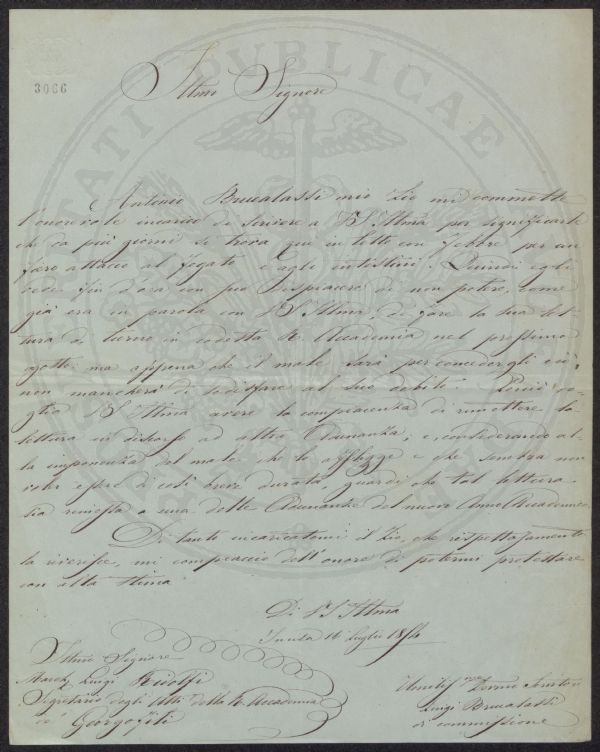 3066
Illmo Signore
Antonio Brucalassi mio Zio mi commette
l'onorevole incarico di scrivere a VS Illma per significarle
che da più giorni si trova qui in letto con febbre per un
fiero attacco al fegato e agli intestini. Quindi egli
vede fin d'ora con suo dispiacere di non potere, come
già era in parola con VS Illma, di fare la sua let-
tura di turno in codesta R. Accademia nel prossimo
agosto: ma appena che il male sarà per concedergli ciò,
non mancherà di sodisfare al suo debito. Perciò vo-
glia VS Illma avere la compiacenza di rimettere la
lettura in discorso ad altra Adunanza; e, considerando al-
la imponenza del male che lo affligge e che sembra non
voler essere di così breve durata, guardi che tal lettura
sia rimessa a una delle Adunanze del nuovo Anno Accademico.
Di tanto incaricatomi il Zio, che rispettosamente
la riverisce, mi compiaccio dell'onore di potermi protestare
con alta stima
Di VS Illma
Incisa 16 luglio 1854
Illmo Signore
March. Luigi Ridolfi
Segretario degli Atti della R. Accademia
de' Georgofili
Umilis. Devmo Servitore
Luigi Brucalassi
di commissione
PUBLICAE